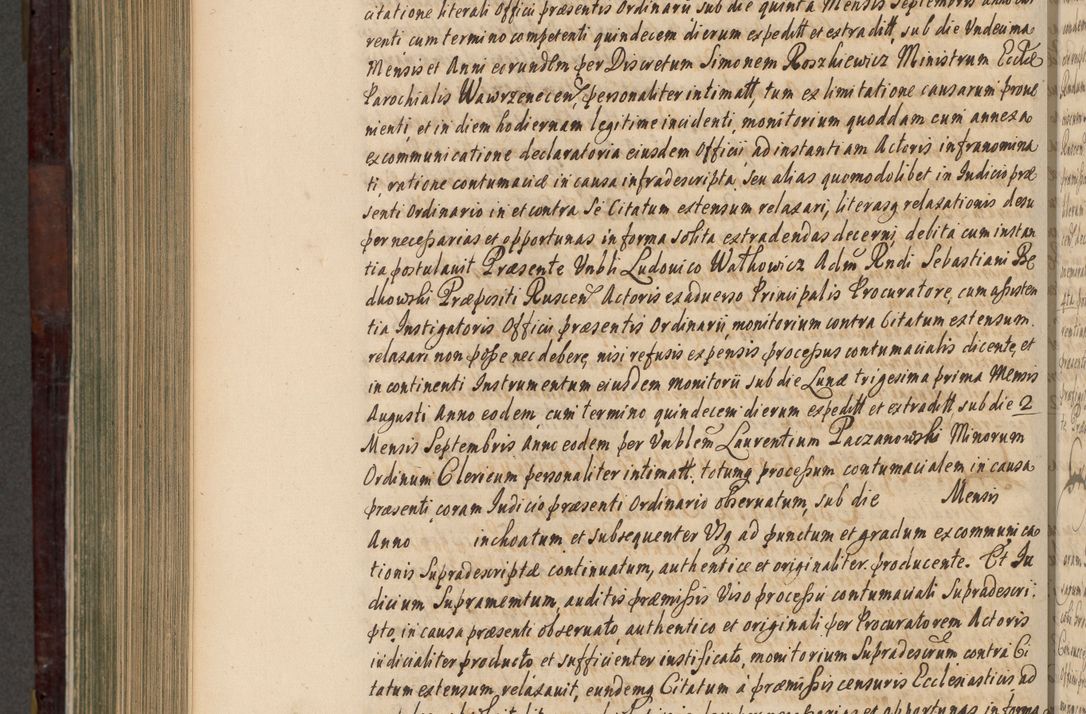 citatione literali Officii præsentis Ordinarii sub die quinta Mensis Septembris anno cur
renti cum termino competenti quindecem dierum expeditt et extraditt, sub die Undecima
Mensis et Anni eorundem per Discretum Simonem Roszkiewicz Ministrum Ecclæ
Parochialis Wawrzenecen, personaliter intimatt, tum ex limitatione causarum prove
nienti, et in diem hodiernam legitime incidenti, monitorium quoddam cum annexa
excommunicatione declaratoria eiusdem Officii ad instantiam Actoris infranomina
ti, ratione contumaciæ in causa infradescripta, seu alias quomodolibet in Iudicio præ
senti Ordinario in et contra Se Citatum extensum relaxari, literasq relaxationis desu
per necessarias et opportunas in forma solita extradendas decerni, debita cum instan
tia postulavit Præsente Vnbli Ludovico Wałkowicz Adm Rndi Sebastiani Be
dkowski Præpositi Ruscen Actoris ex adverso Principalis Procuratore, cum assisten
tia Instigatoris Officii præsentis Ordinarii monitorium contra Citatum extensum
relaxari non posse nec debere, nisi refusis expensis processus contumacialis dicente, et
in continenti Instrumentum eiusdem monitorii sub die Lunæ trigesima prima Mensis
Augusti Anno eodem, cum termino quindecem dierum expeditt et extraditt sub die 2
Mensis Septembris Anno eodem per Vnblem Laurentium Paczanowski Minorum
Ordinum Clericum personaliter intimatt. totumq processum contumacialem in causa
præsenti, coram Iudicio præsenti Ordinario observatum, sub die Mensis
Anno inchoatum et subsequenter Usq ad punctum et gradum excommunica
tionis Supradescriptæ continuatum, authentice et originaliter producente. Et Iu
dicium Supramemtum, auditis præmissis Viso processu contumaciali Supradescri
pto, in causa præsenti observato, authentico et originali per Procuratorem Actoris
iudicialiter producto et sufficienter iustificato, monitorium Supradescrum contra Ci
tatum extensum, relaxavit, eundemq Citatum à præmissis censuris Ecclesiasticis ad